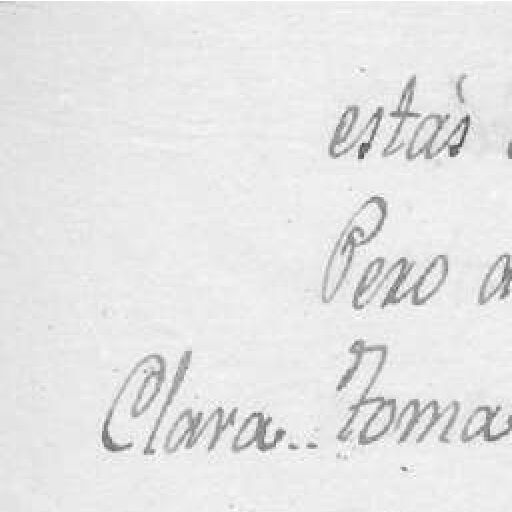 estás
Pero
Clara.. Toma